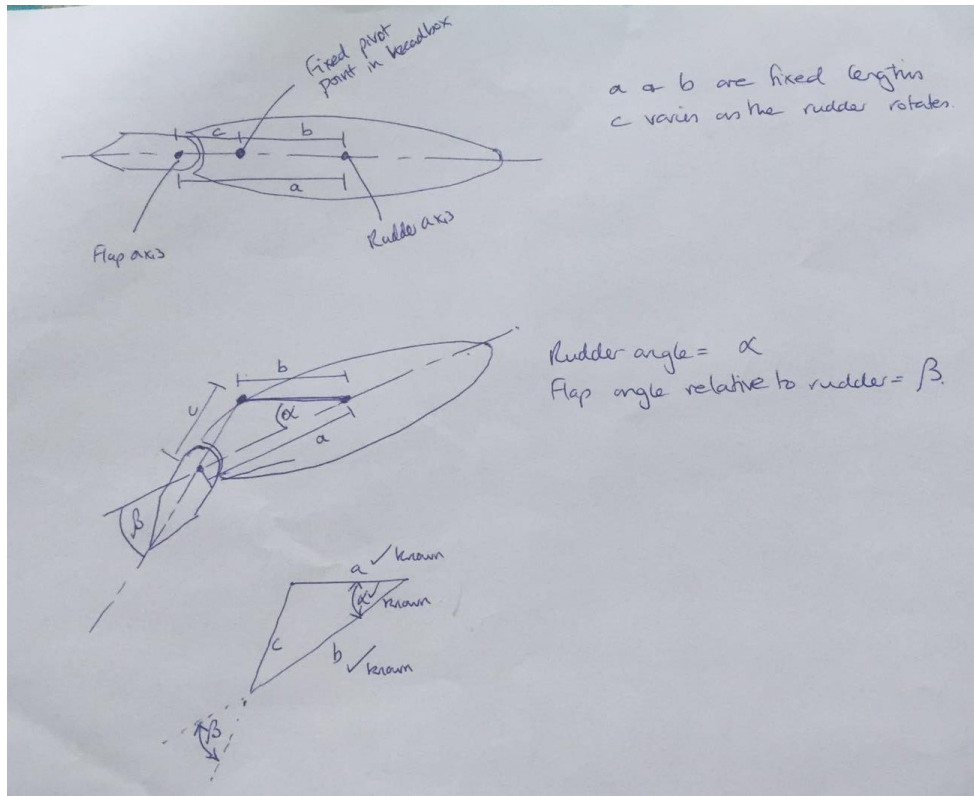 Fixed pivot
point in headbox
a & b are fixed lengths
c varies as the rudder rotates.
c
b
a
Flap axis
Rudder axis
b
c
α
a
β
Rudder angle = α
Flap angle relative to rudder = β.
a ✓ known
α ✓ known
c
b ✓ known
β